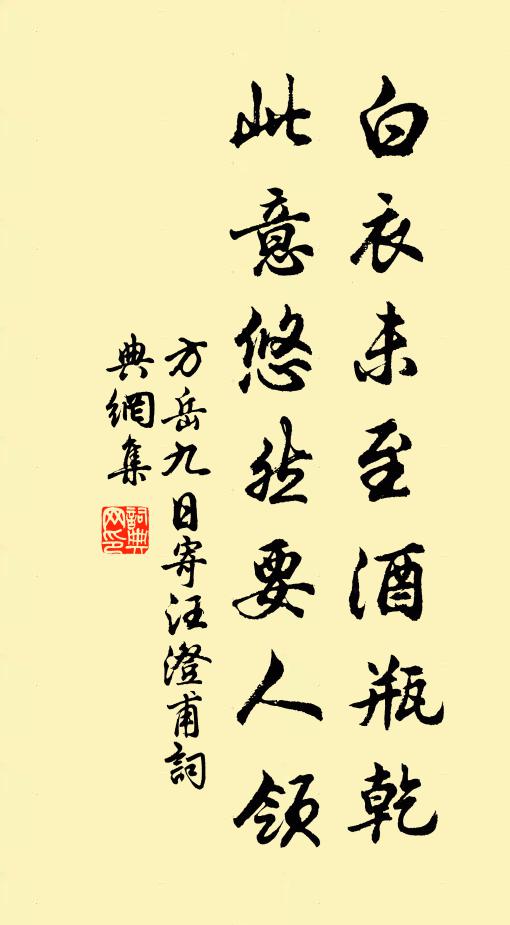 白衣未至酒瓶乾
此意悠然要人領
方岳九日寄汪澄甫詞
典網集
詞典网印